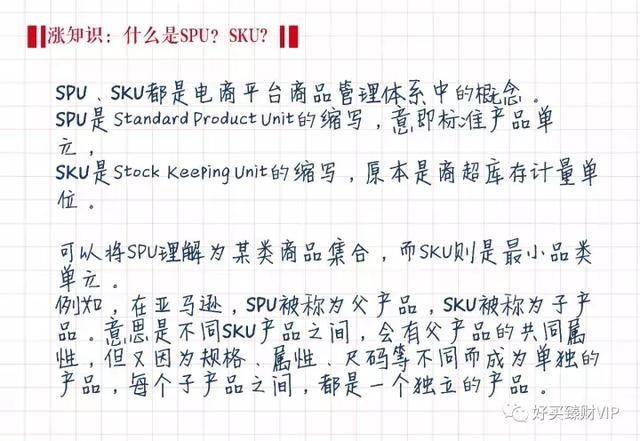 涨知识：什么是SPU？SKU？
SPU、SKU都是电商平台商品管理体系中的概念。
SPU是Standard Product Unit的缩写，意即标准产品单
元，
SKU是Stock Keeping Unit的缩写，原本是商超库存计量单
位。
可以将SPU理解为某类商品集合，而SKU则是最小品类
单元。
例如，在亚马逊，SPU被称为父产品，SKU被称为子产
品。意思是不同SKU产品之间，会有父产品的共同属
性，但又因为规格、属性、尺码等不同而成为单独的
产品，每个子产品之间，都是一个独立的产品。
好买臻财VIP